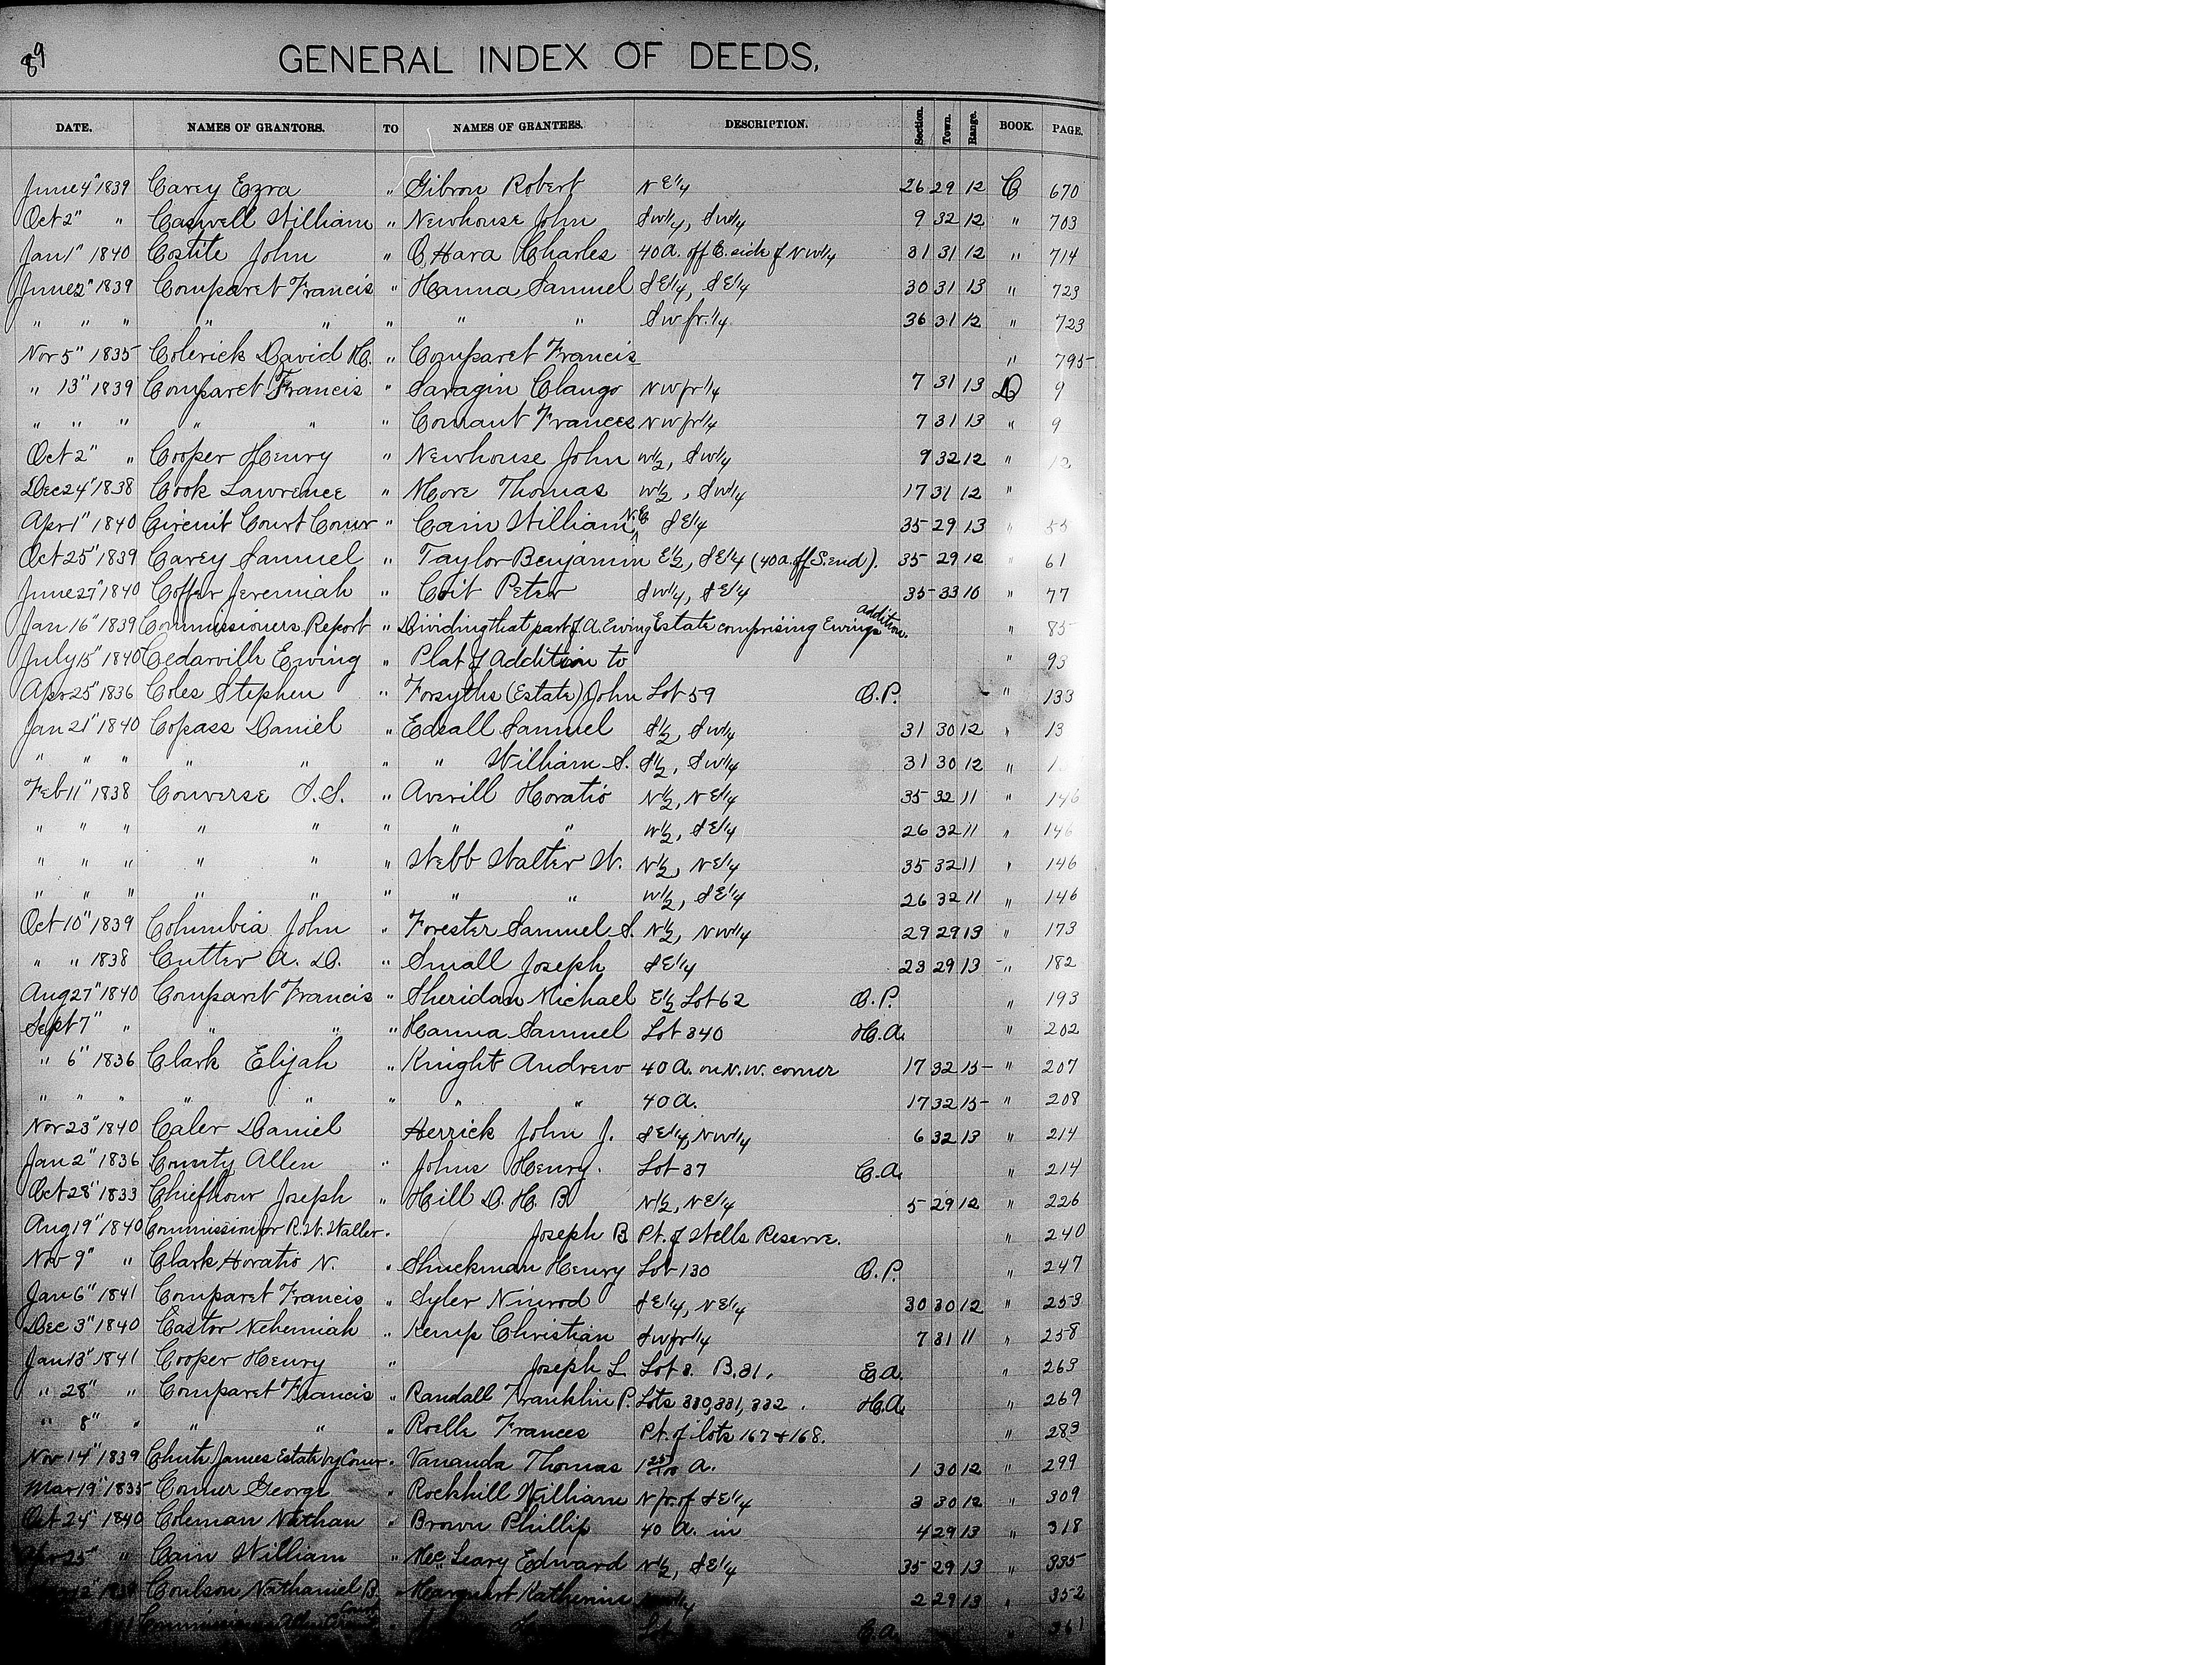 89
GENERAL INDEX OF DEEDS,
DATE. NAMES OF GRANTORS. TO NAMES OF GRANTEES. DESCRIPTION. Section. Town. Range. BOOK. PAGE.
June 4" 1839 Carey Ezra " Gibron Robert N E 1/4 26 29 12 C 670
Oct 2" " Caswell William " Newhouse John S W 1/4, S W 1/4 9 32 12 " 703
Jan 1" 1840 Costite John " O Hara Charles 40 A. off E. side of N W 1/4 31 31 12 " 714
June 2" 1839 Comparet Francis " Hanna Samuel S E 1/4, S E 1/4 30 31 13 " 723
" " " " " " " " S W fr. 1/4 36 31 12 " 723
Nov 5" 1835 Colerick David H. " Comparet Francis " 795
" 13" 1839 Comparet Francis " Saragin Clango N W fr 1/4 7 31 13 D 9
" " " " " " Conant Frances N W fr 1/4 7 31 13 " 9
Oct 2" " Cooper Henry " Newhouse John W 1/2, S W 1/4 9 32 12 " 12
Dec 24" 1838 Cook Lawrence " More Thomas W 1/2, S W 1/4 17 31 12 "
Apr 1" 1840 Circuit Court Comr " Cain William N. C. S E 1/4 35 29 13 " 55
Oct 25" 1839 Carey Samuel " Taylor Benjamin E 1/2, S E 1/4 (40 a. off S. end). 35 29 12 " 61
June 27" 1840 Coffer Jeremiah " Coit Peter S W 1/4, S E 1/4 35 33 10 " 77
Jan 16" 1839 Commissioners Report " Dividing that part of A. Ewing Estate comprising Ewings addition. " 85
July 15" 1840 Cedarville Ewing " Plat of Addition to " 93
Apr 25" 1836 Coles Stephen " Forsyths (Estate) John Lot 59 O.P. " 133
Jan 21" 1840 Copass Daniel " Edsall Samuel S 1/2, S W 1/4 31 30 12 " 13
" " " " " " " William S. S 1/2, S W 1/4 31 30 12 "
Feb 11" 1838 Converse J. S. " Averill Horatio N 1/2, N E 1/4 35 32 11 " 146
" " " " " " " " W 1/2, S E 1/4 26 32 11 " 146
" " " " " " Webb Walter W. N 1/2, N E 1/4 35 32 11 " 146
" " " " " " " " W 1/2, S E 1/4 26 32 11 " 146
Oct 10" 1839 Columbia John " Forester Samuel S. N 1/2, N W 1/4 29 29 13 " 173
" " 1838 Cutter A. D. " Small Joseph S E 1/4 23 29 13 " 182
Aug 27" 1840 Comparet Francis " Sheridan Michael E 1/2 Lot 62 O.P. " 193
Sept 7" " " " " Hanna Samuel Lot 340 H.A. " 202
" 6" 1836 Clark Elijah " Knight Andrew 40 A. on N.W. corner 17 32 15 " 207
" " " " " " " " 40 A. 17 32 15 " 208
Nov 23" 1840 Caler Daniel Herrick John J. S E 1/4, N W 1/4 6 32 13 " 214
Jan 2" 1836 County Allen " Johns Henry. Lot 37 C.A. " 214
Oct 28" 1833 Chiefhour Joseph " Hill D. H. B N 1/2, N E 1/4 5 29 12 " 226
Aug 19" 1840 Commission for R. W. Waller " Joseph B Pt. of Wells Reserve. " 240
Nov 9" " Clark Horatio N. " Shuckman Henry Lot 130 O.P. " 247
Jan 6" 1841 Comparet Francis " Syler Nimrod S E 1/4, N E 1/4 30 30 12 " 253
Dec 3" 1840 Castor Nehemiah " Kemp Christian S W fr 1/4 7 31 11 " 258
Jan 13" 1841 Cooper Henry " Joseph L Lot 8. B. 31. E.A. " 263
" 28" " Comparet Francis " Randall Franklin P. Lots 330, 331, 332. H.A. " 269
" 8" " " " " Roelle Frances Pt. of lots 167 + 168. " 283
Nov 14" 1839 Chute James Estate by Comr " Vananda Thomas 1 25/100 A. 1 30 12 " 299
Mar 19" 1835 Conner George " Rockhill William N pr. of S E 1/4 3 30 12 " 309
Oct 24" 1840 Coleman Nathan " Brown Phillip 40 A. in 4 29 13 " 318
Apr 25" " Cain William " McLeary Edward N 1/2, S E 1/4 35 29 13 " 335
Coulson Nathaniel B. " Marquart Katherine 2 29 13 " 352
Lot C.A. " 361